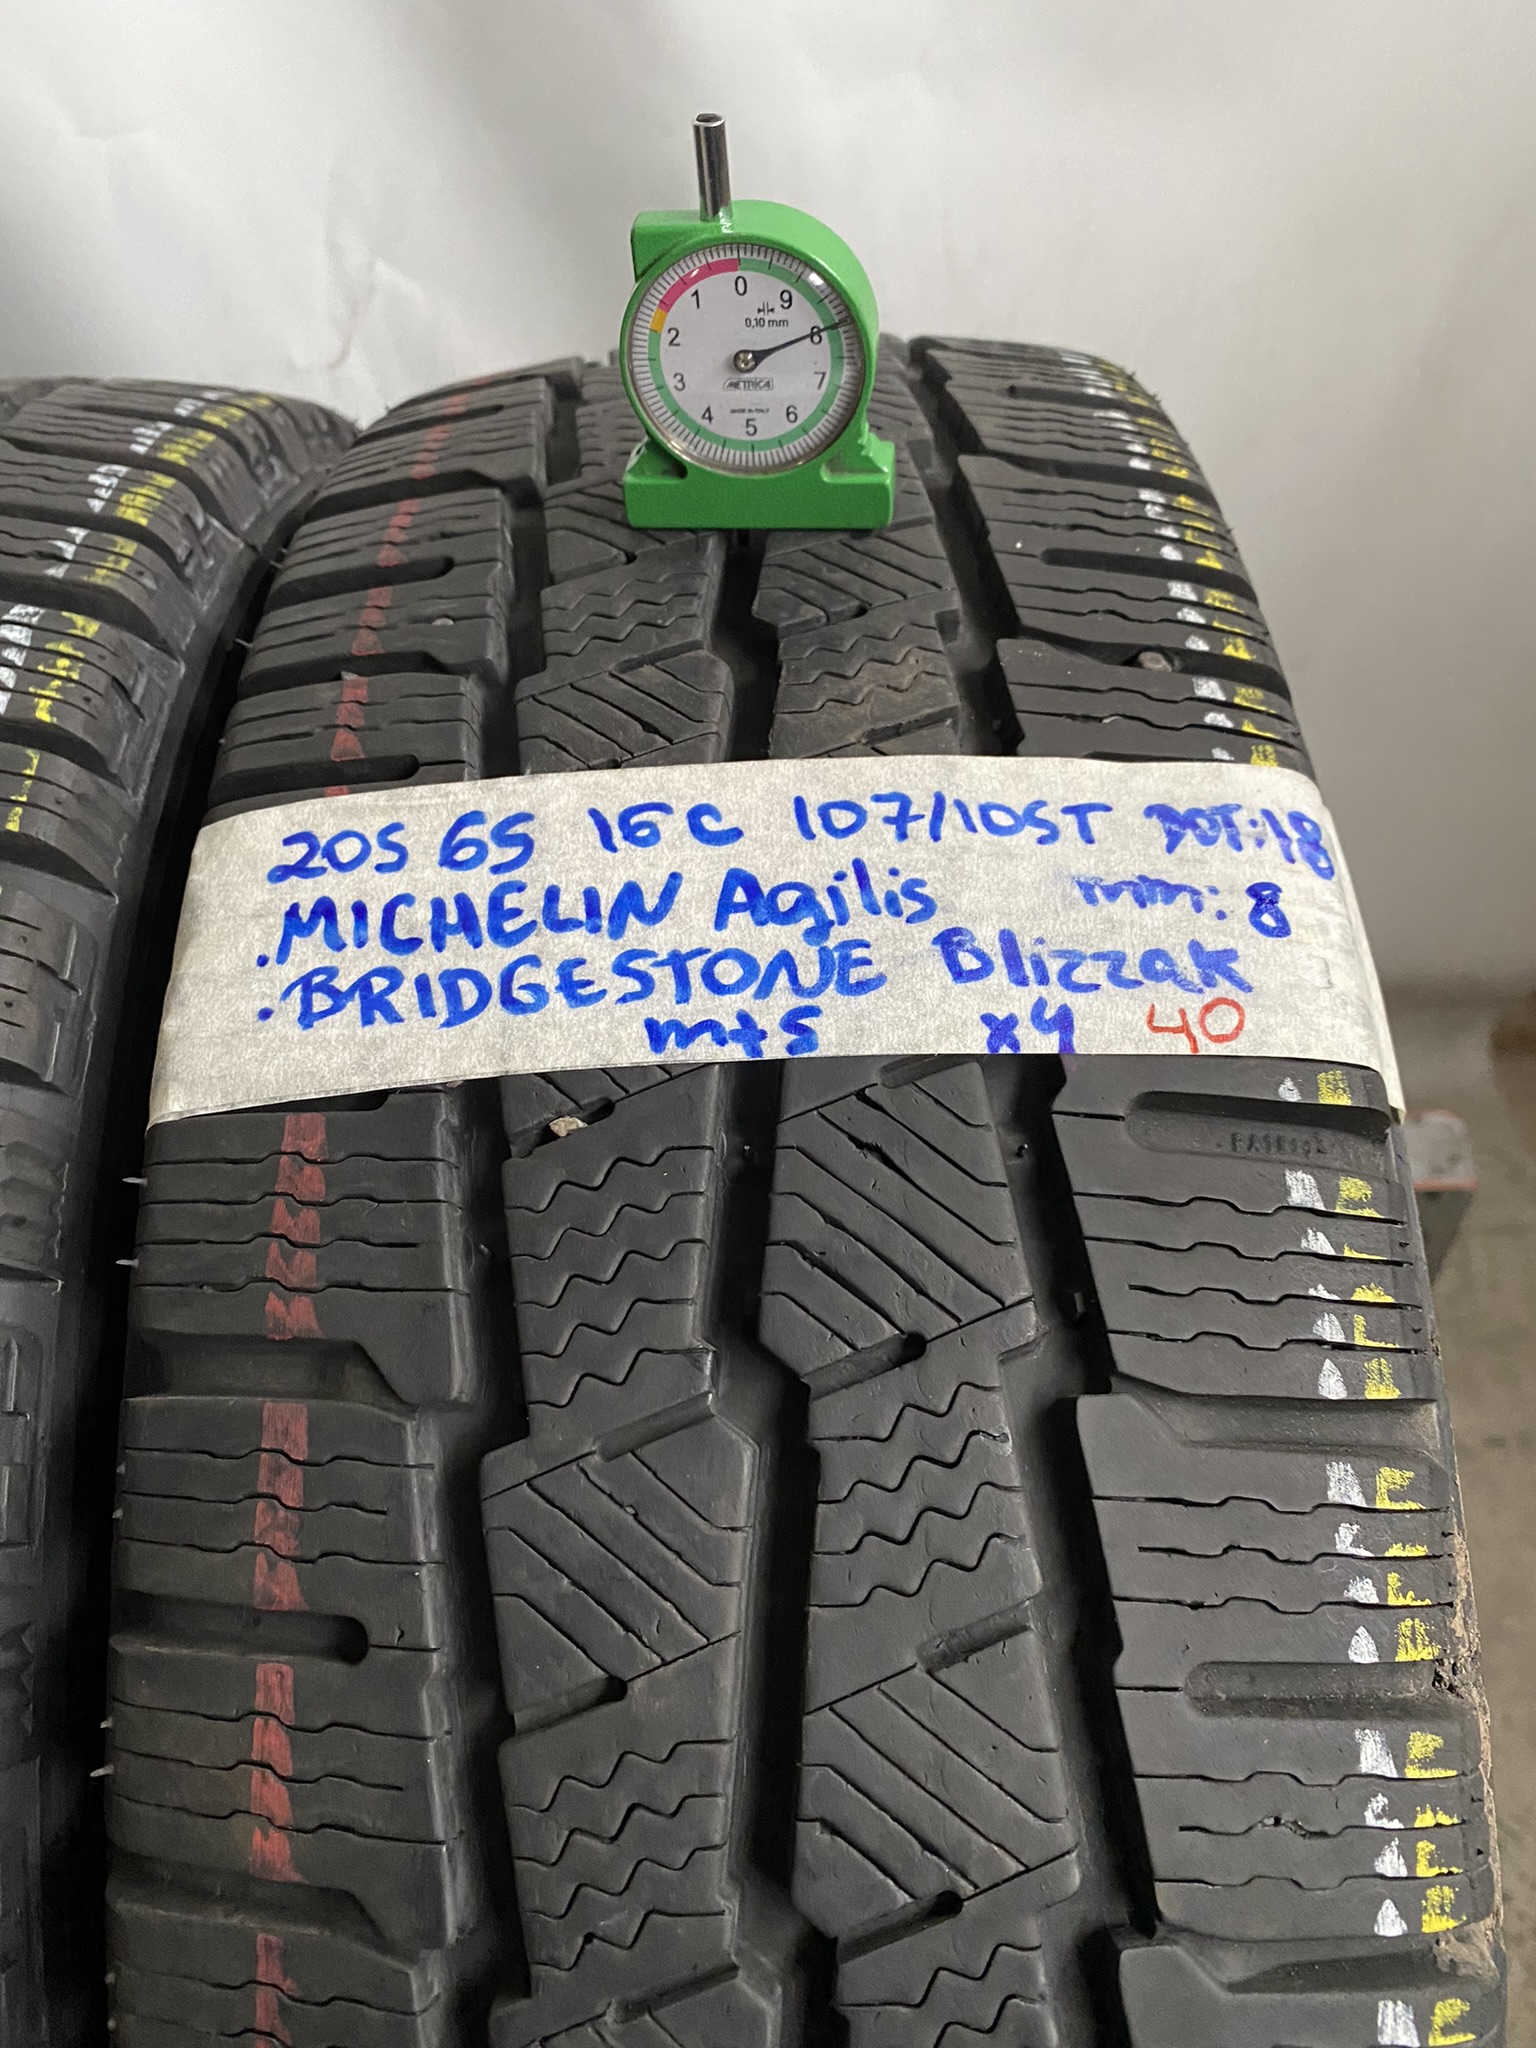 0
1
9
0,10 mm
2
8
3
METRICA
7
MADE IN ITALY
4
6
5
205 65 16C 107/105T DOT:18
.MICHELIN Agilis mm: 8
.BRIDGESTONE Blizzak
m+s x4 40